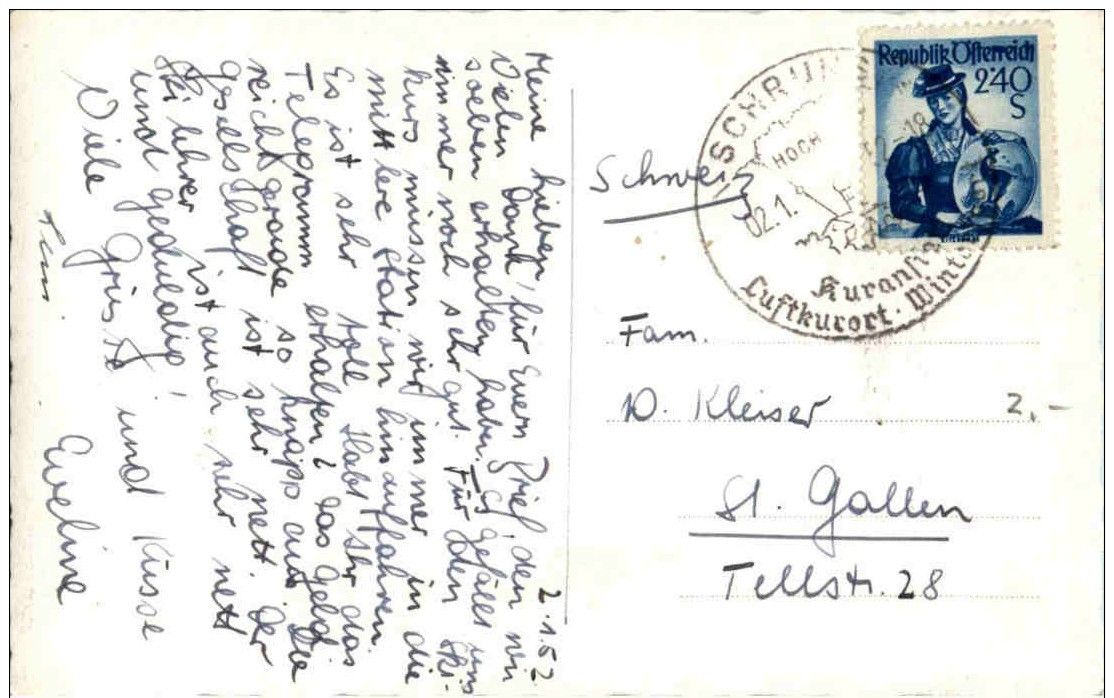 2.1.52
Meine Lieben!
Vielen Dank für Euern Brief, den wir
soeben erhalten haben. Es gefällt uns
immer noch sehr gut. Für den Ski-
kurs müssen wir immer in die
mittlere Station hinauffahren.
Es ist sehr toll. Habt Ihr das
Telegramm erhalten? Das Geld
reicht gerade so knapp aus. Die
Gesellschaft ist sehr nett. Der
Skilehrer ist auch sehr nett
und geduldig!
Viele Grüsse und Küsse
Eveline
Republik Österreich
240
S
SCHRUN
HOCH
18
02.1.
Luftkurort. Wint
Schweiz
Fam.
W. Kleiser
2,-
St. Gallen
Tellstr. 28